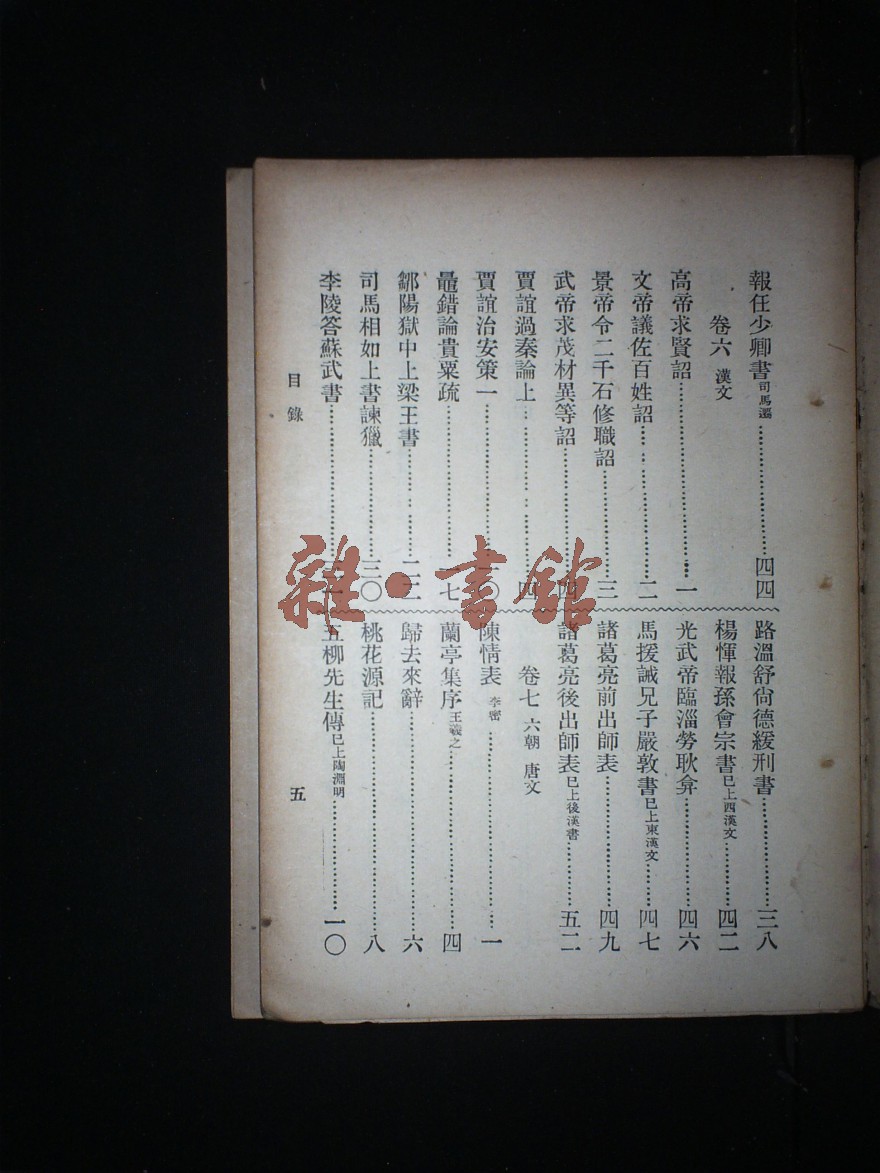 報任少卿書 司馬遷……四四
卷六 漢文
高帝求賢詔……一
文帝議佐百姓詔……二
景帝令二千石修職詔……三
武帝求茂材異等詔……四
賈誼過秦論上……四
賈誼治安策一……一〇
鼂錯論貴粟疏……一七
鄒陽獄中上梁王書……二二
司馬相如上書諫獵……三〇
李陵答蘇武書……
路溫舒尙德緩刑書……三八
楊惲報孫會宗書 已上西漢文……四二
光武帝臨淄勞耿弇……四六
馬援誡兄子嚴敦書 已上東漢文……四七
諸葛亮前出師表……四九
諸葛亮後出師表 已上後漢書……五二
卷七 六朝 唐文
陳情表 李密……一
蘭亭集序 王羲之……四
歸去來辭……六
桃花源記……八
五柳先生傳 已上陶淵明……一〇
目錄
五
雜·書館